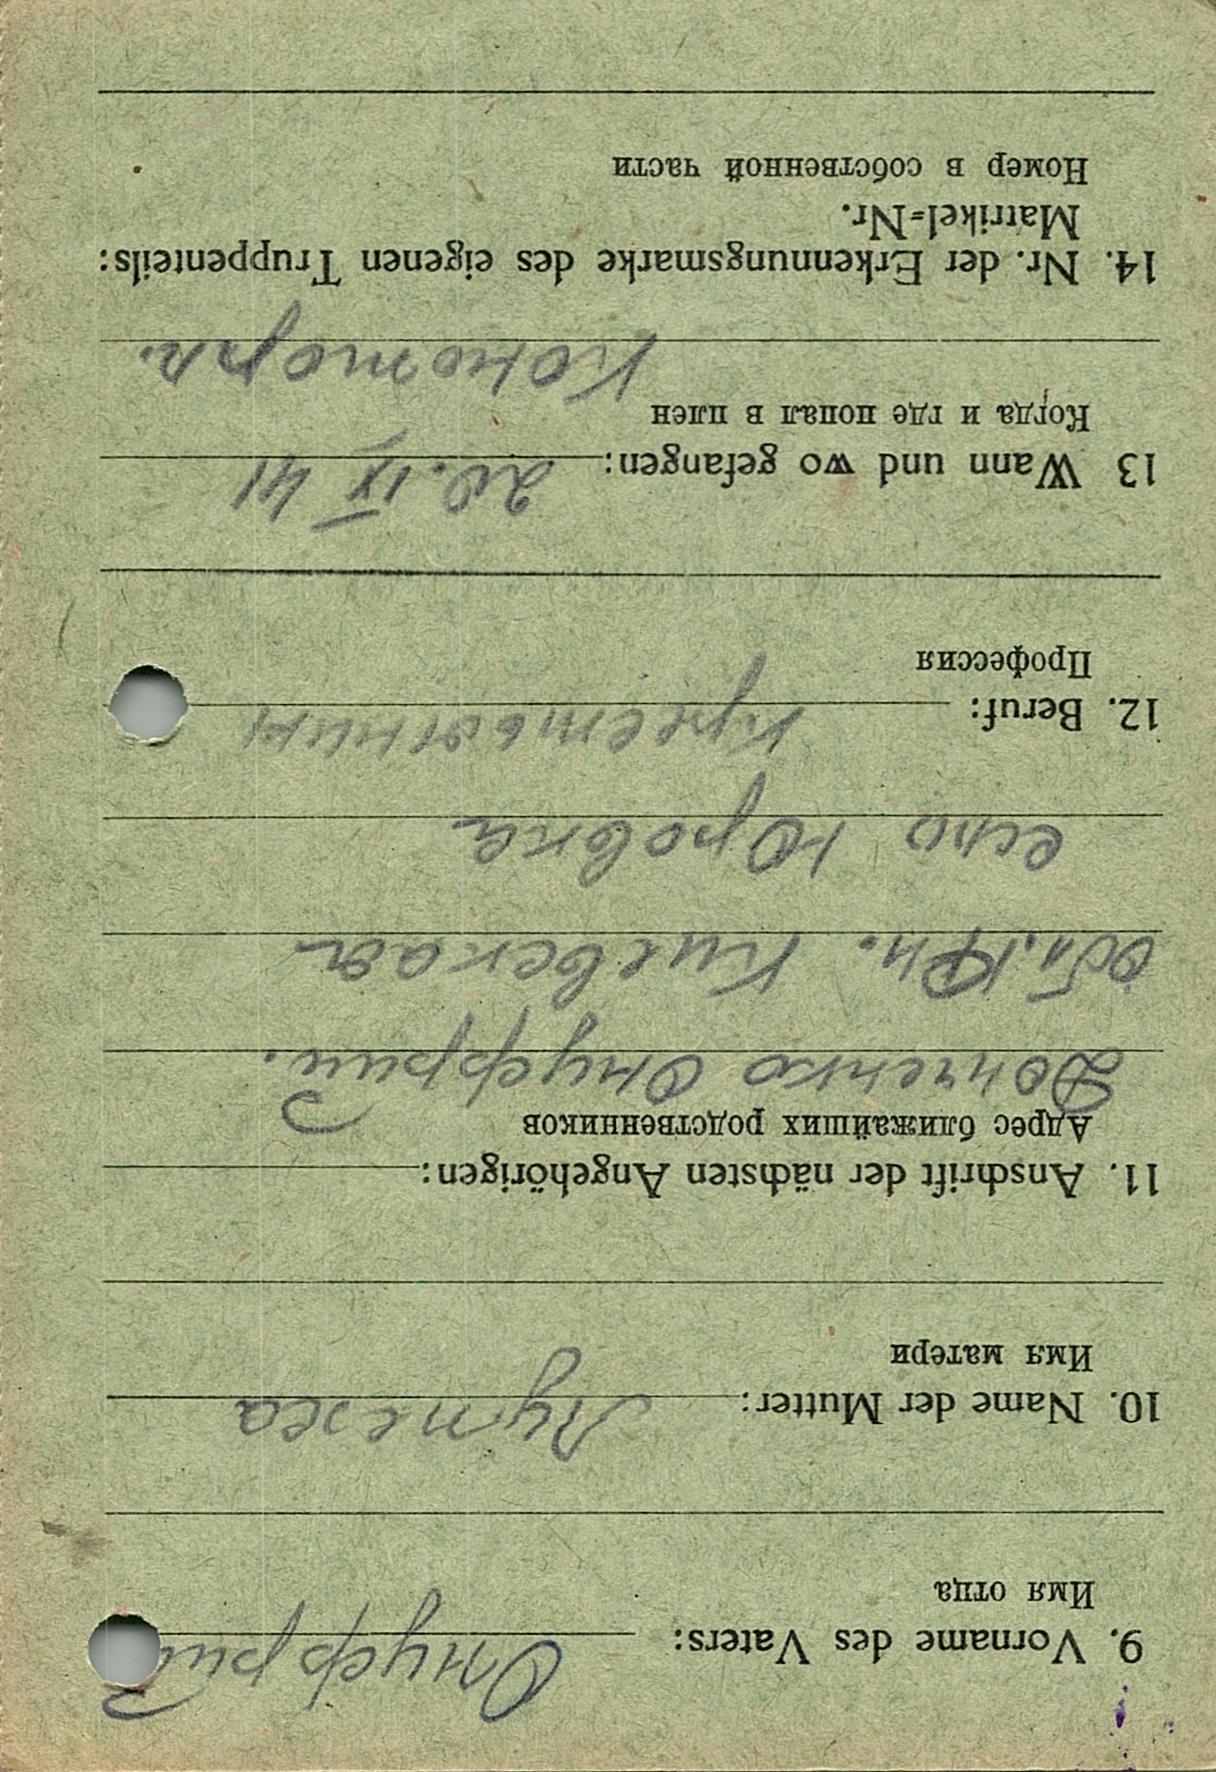 9. Vorname des Vaters: Онуффрий
Имя отца
10. Name der Mutter:
Имя матери
11. Anschrift der nächsten Angehörigen:
Адрес ближайших родственников
Донченко Онуффрий.
обл. Киевская
село Юровка
12. Beruf: крестьянин
Профессия
13 Wann und wo gefangen: 20. IX 41
Когда и где попал в плен
Коноторп.
14. Nr. der Erkennungsmarke des eigenen Truppenteils:
Matrikel=Nr.
Номер в собственной части